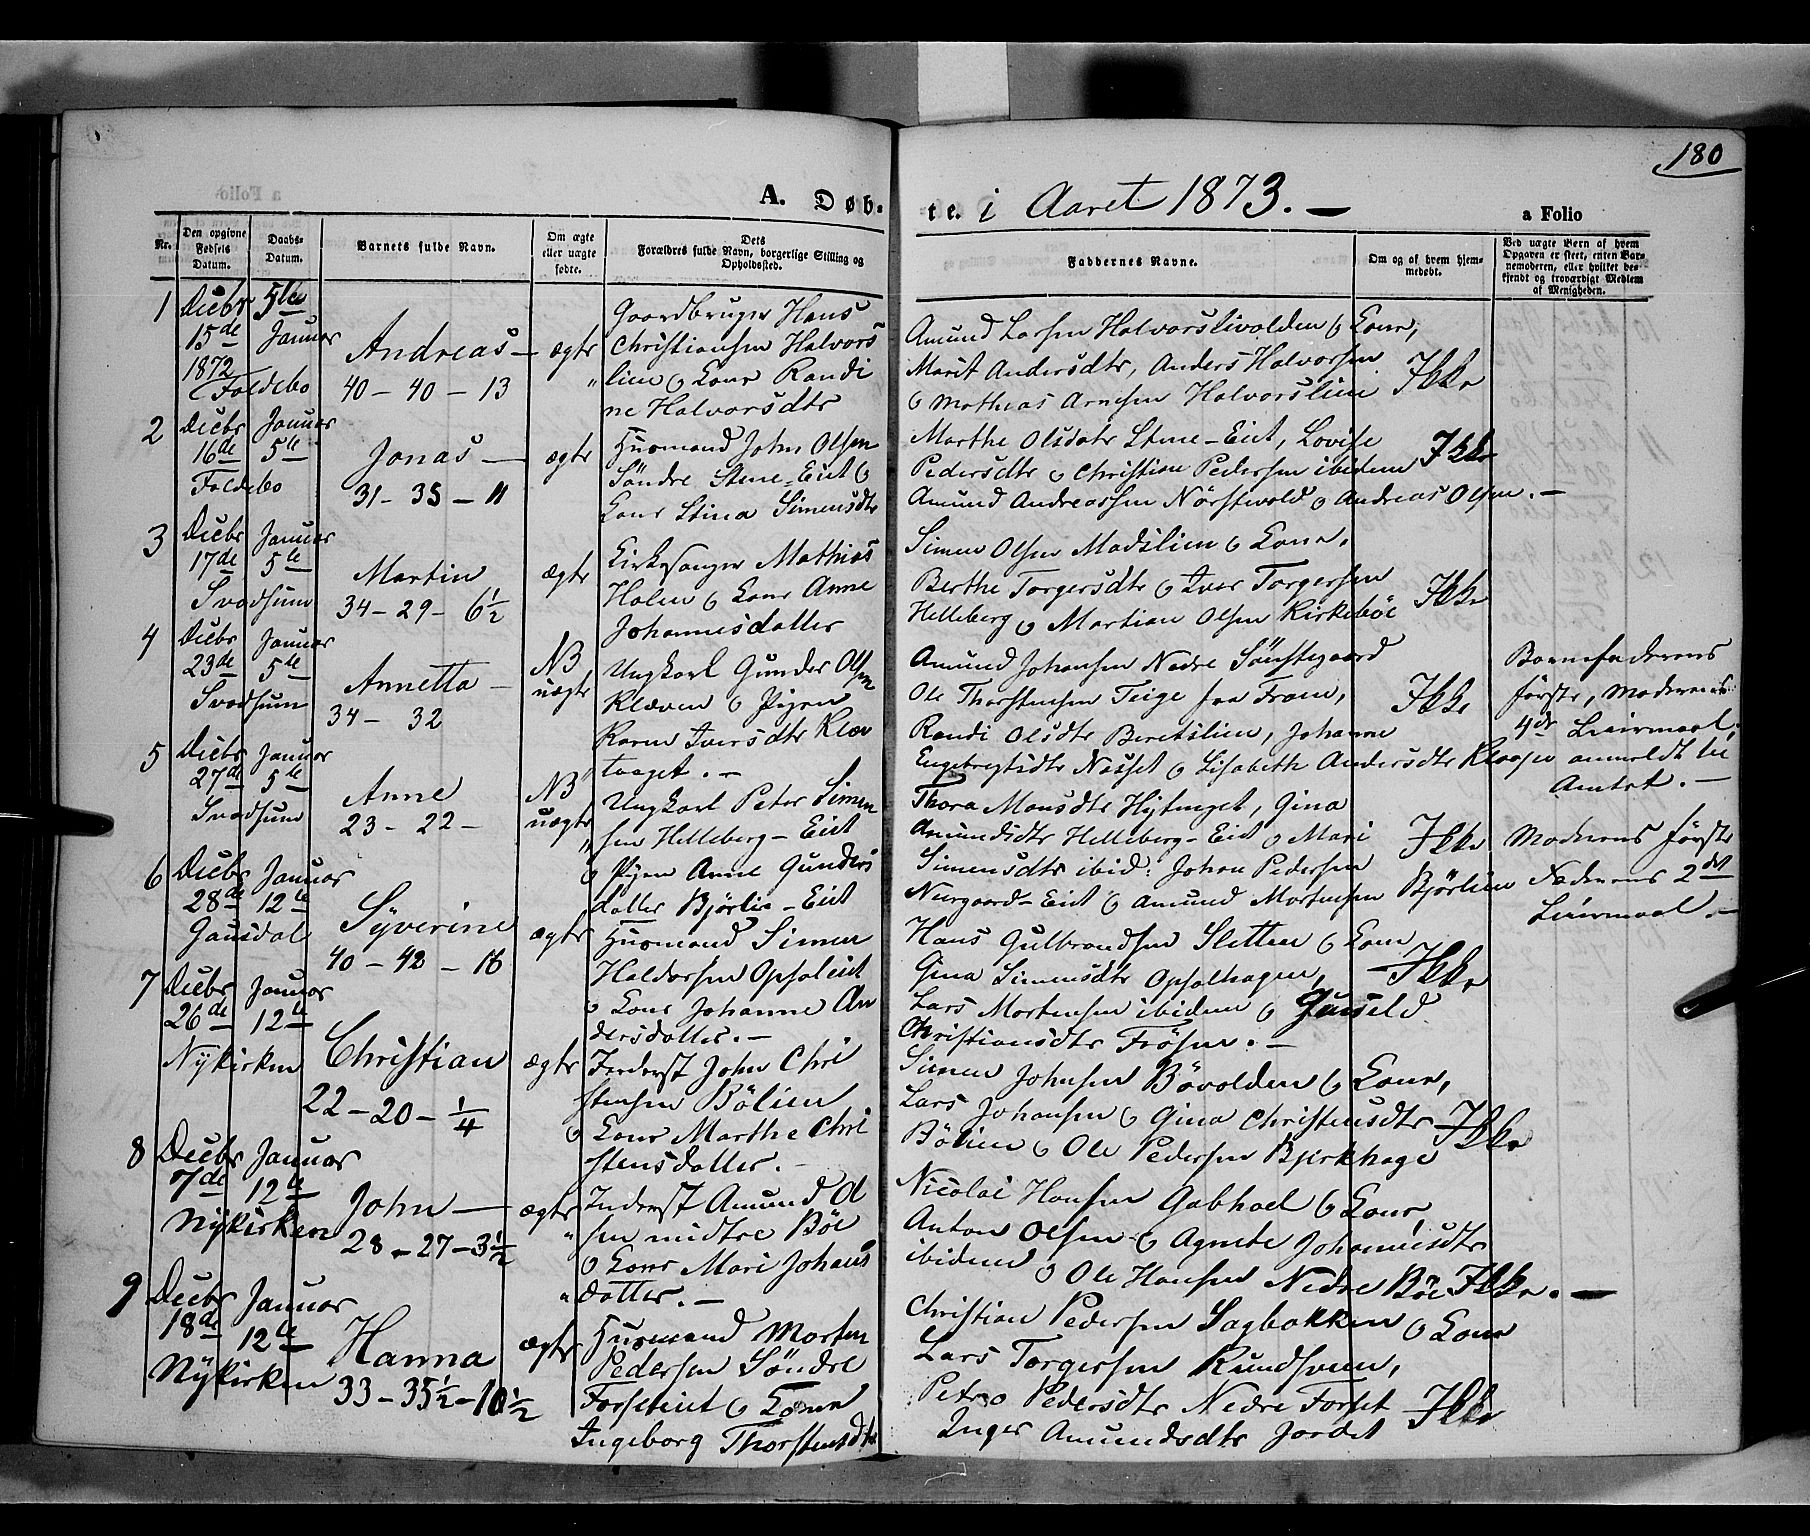 180
A. Døb-
te. i Aaret 1873. —
a Folio
Nr.
Den opgivne
Fødsels
Datum.
Daabs-
Datum.
Barnets fulde Navn.
Om ægte
eller uægte
fødte.
Dets
Forældres fulde Navn, borgerlige Stilling og
Opholdssted.
Faddernes Navne.
Om og af hvem hjem-
medøbt.
Ved uægte Børn af hvem
Opgaven er skeet, enten Bar-
nemoderen, eller hvilket be-
kjendt og troværdigt Medlem
af Menigheden.
1
Decbr
15de
1872
Foldebo
5te
Januar
Andreas —
40 - 40 - 13
ægte
Gaardbruger Hans
Christiansen Halvors
lien & Kone Randi
ne Halvorsdtr
Amund Larsen Halvorslivolden & Kone,
Marit Andersdtr, Anders Halvorsen
& Mathias Arnesen Halvorslien
Ikke
2
Decbr
16de
Foldebo
Januar
5te
Jonas —
31 - 35 - 11
ægte
Husmand John Olsen
Söndre Stene-Eiet &
Kone Stina Simensdtr
Marthe Olsdatr Stene-Eiet, Lovise
Pedersdtr & Christian Pedersen ibidem
Amund Andreassen Nörstevold & Andreas Olsen. —
Ikke
3
Decbr
17de
Svadsum
Januar
5te
Martin
34 - 29 - 6½
ægte
Kirkesanger Mathias
Holen & Kone Anne
Johannesdatter
Simen Olsen Madslien & Kone,
Berthe Torgersdtr & Iver Torgersen
Helleberg & Martian Olsen Kirkeböe
Ikke
4
Decbr
23de
Svadsum
Januar
5te
Annetta —
34 - 32
NB
uægte
Ungkarl Gunder Olsen
Kleven & Pigen
Karen Iversdtr Klev
taaget. —
Amund Johansen Nedre Sönstegaard
Ole Thorstensen Teige fra Fron,
Randi Olsdtr Beretslien, Johanne
Engebregtsdtr Nasset & Lisabeth Andersdtr
Ikke
Barnefaderens
förste, Moderens
4de Leiermaal,
anmeldt til
Amtet. —
5
Decbr
27de
Svadsum
Januar
5te
Anne
23 - 22 -
NB
uægte
Ungkarl Peter Simen
sen Helleberg-Eiet
& Pigen Anne Gunders
datter Björlie-Eiet
Thora Monsdtr, Gina
Amundsdtr Helleberg-Eiet & Mari
Simensdtr ibid: Johan Pedersen
Neergaard-Eiet & Amund Mortensen Björlien
Ikke
Moderens förste
Faderens 2det
Leiermaal. —
6
Decbr
28de
Gausdal
Januar
12te
Syverine
40 - 42 - 16
ægte
Husmand Simen
Haldorsen Opsaleiet
& Kone Johanne An
dersdatter. —
Hans Gulbrandsen Sletten & Kone
Gina Simensdtr Opsalhagen,
Lars Mortensen ibidem &
Christiansdtr Frösen. —
Ikke
7
Decbr
26de
Nykirken
Januar
12te
Christian
22 - 20 - ¼
ægte
Inderst John Chri
stensen Bölien
& Kone Marthe Chri
stensdatter. —
Simen Johnsen Bövolden & Kone,
Lars Johansen & Gina Christensdtr
Bölien & Ole Pedersen Bjerkhage
Ikke
8
Decbr
7de
Nykirken
Januar
12te
John —
28 - 27 - 3½
ægte
Inderst Amund Ol
sen midtre Böe
& Kone Mari Johans
datter. —
Nicolai Hansen Gabhoel & Kone,
Anton Olsen & Agnete Johannesdtr
ibidem & Ole Hansen Nedre Böe
Ikke. —
9
Decbr
18de
Nykirken
Januar
12te
Hanna
33 - 35½ - 10½
ægte
Husmand Morten
Pedersen Söndre
Forseteiet & Kone
Ingeborg Thorstensdtr
Christian Pedersen Sagbakken & Kone
Lars Torgersen Rundsveen,
Petra Pedersdtr Nedre Forset
Inger Amundsdtr Jordet
Ikke